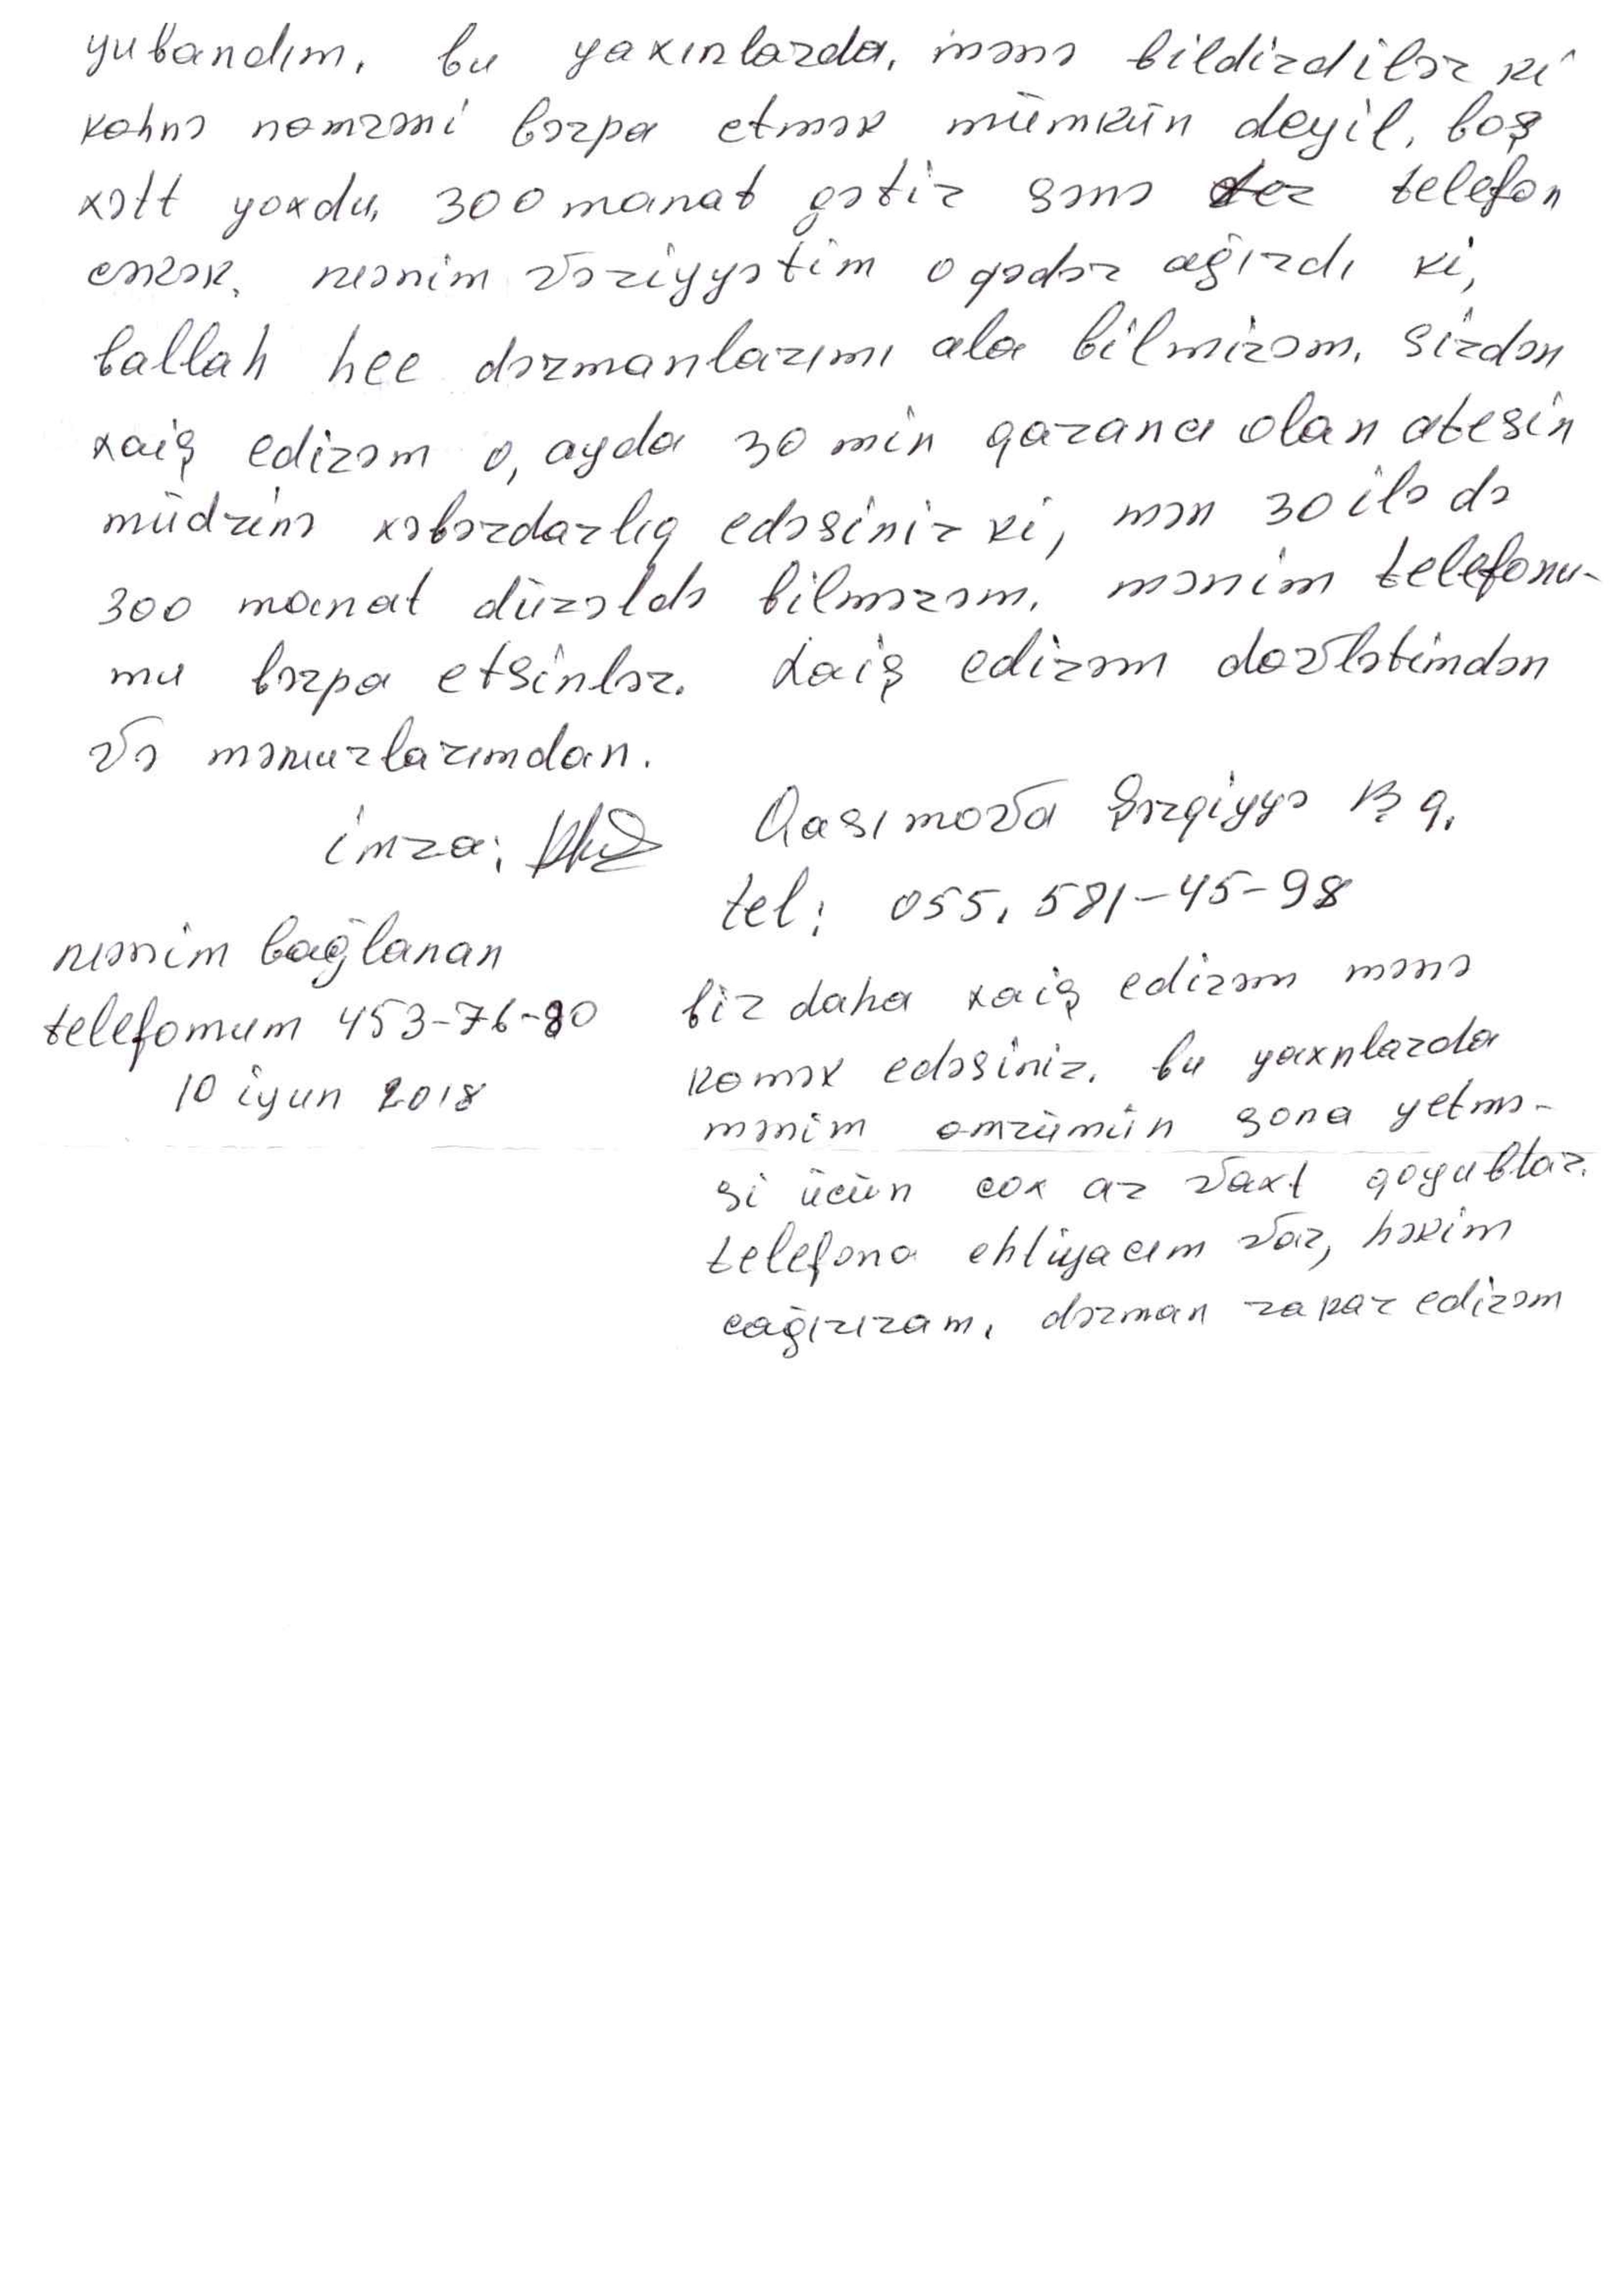 yubandım, bu yaxınlarda, mənə bildirdilər ki
kohnə nomrəni bərpa etmək mümkün deyil, boş
xətt yoxdu, 300 manat gətir sənə telefon
cəkək. mənim vəziyyətim o qədər ağırdı ki,
ballah hec dərmanlarımı ala bilmirəm. sizdən
xaiş edirəm o, ayda 30 min qazancı olan atesin
müdrinə xəbərdarlıq edəsiniz ki, mən 30 ilə də
300 manat düzəldə bilmərəm, mənim telefonu-
mu bərpa etsinlər. Xaiş edirəm dovlətimdən
və məmurlarımdan.
imza:
Qasımova Şərqiyyə B q.
tel: 055. 581-45-98
mənim bağlanan
telefomum 453-76-80
10 iyun 2018
bir daha xaiş edirəm mənə
komək edəsiniz. bu yaxnlarda
mənim omrümün sona yetmə-
si ücün cox az vaxt qoyubtar.
telefona ehtiyacım var, həkim
cağırıram, dərman zakaz edirəm